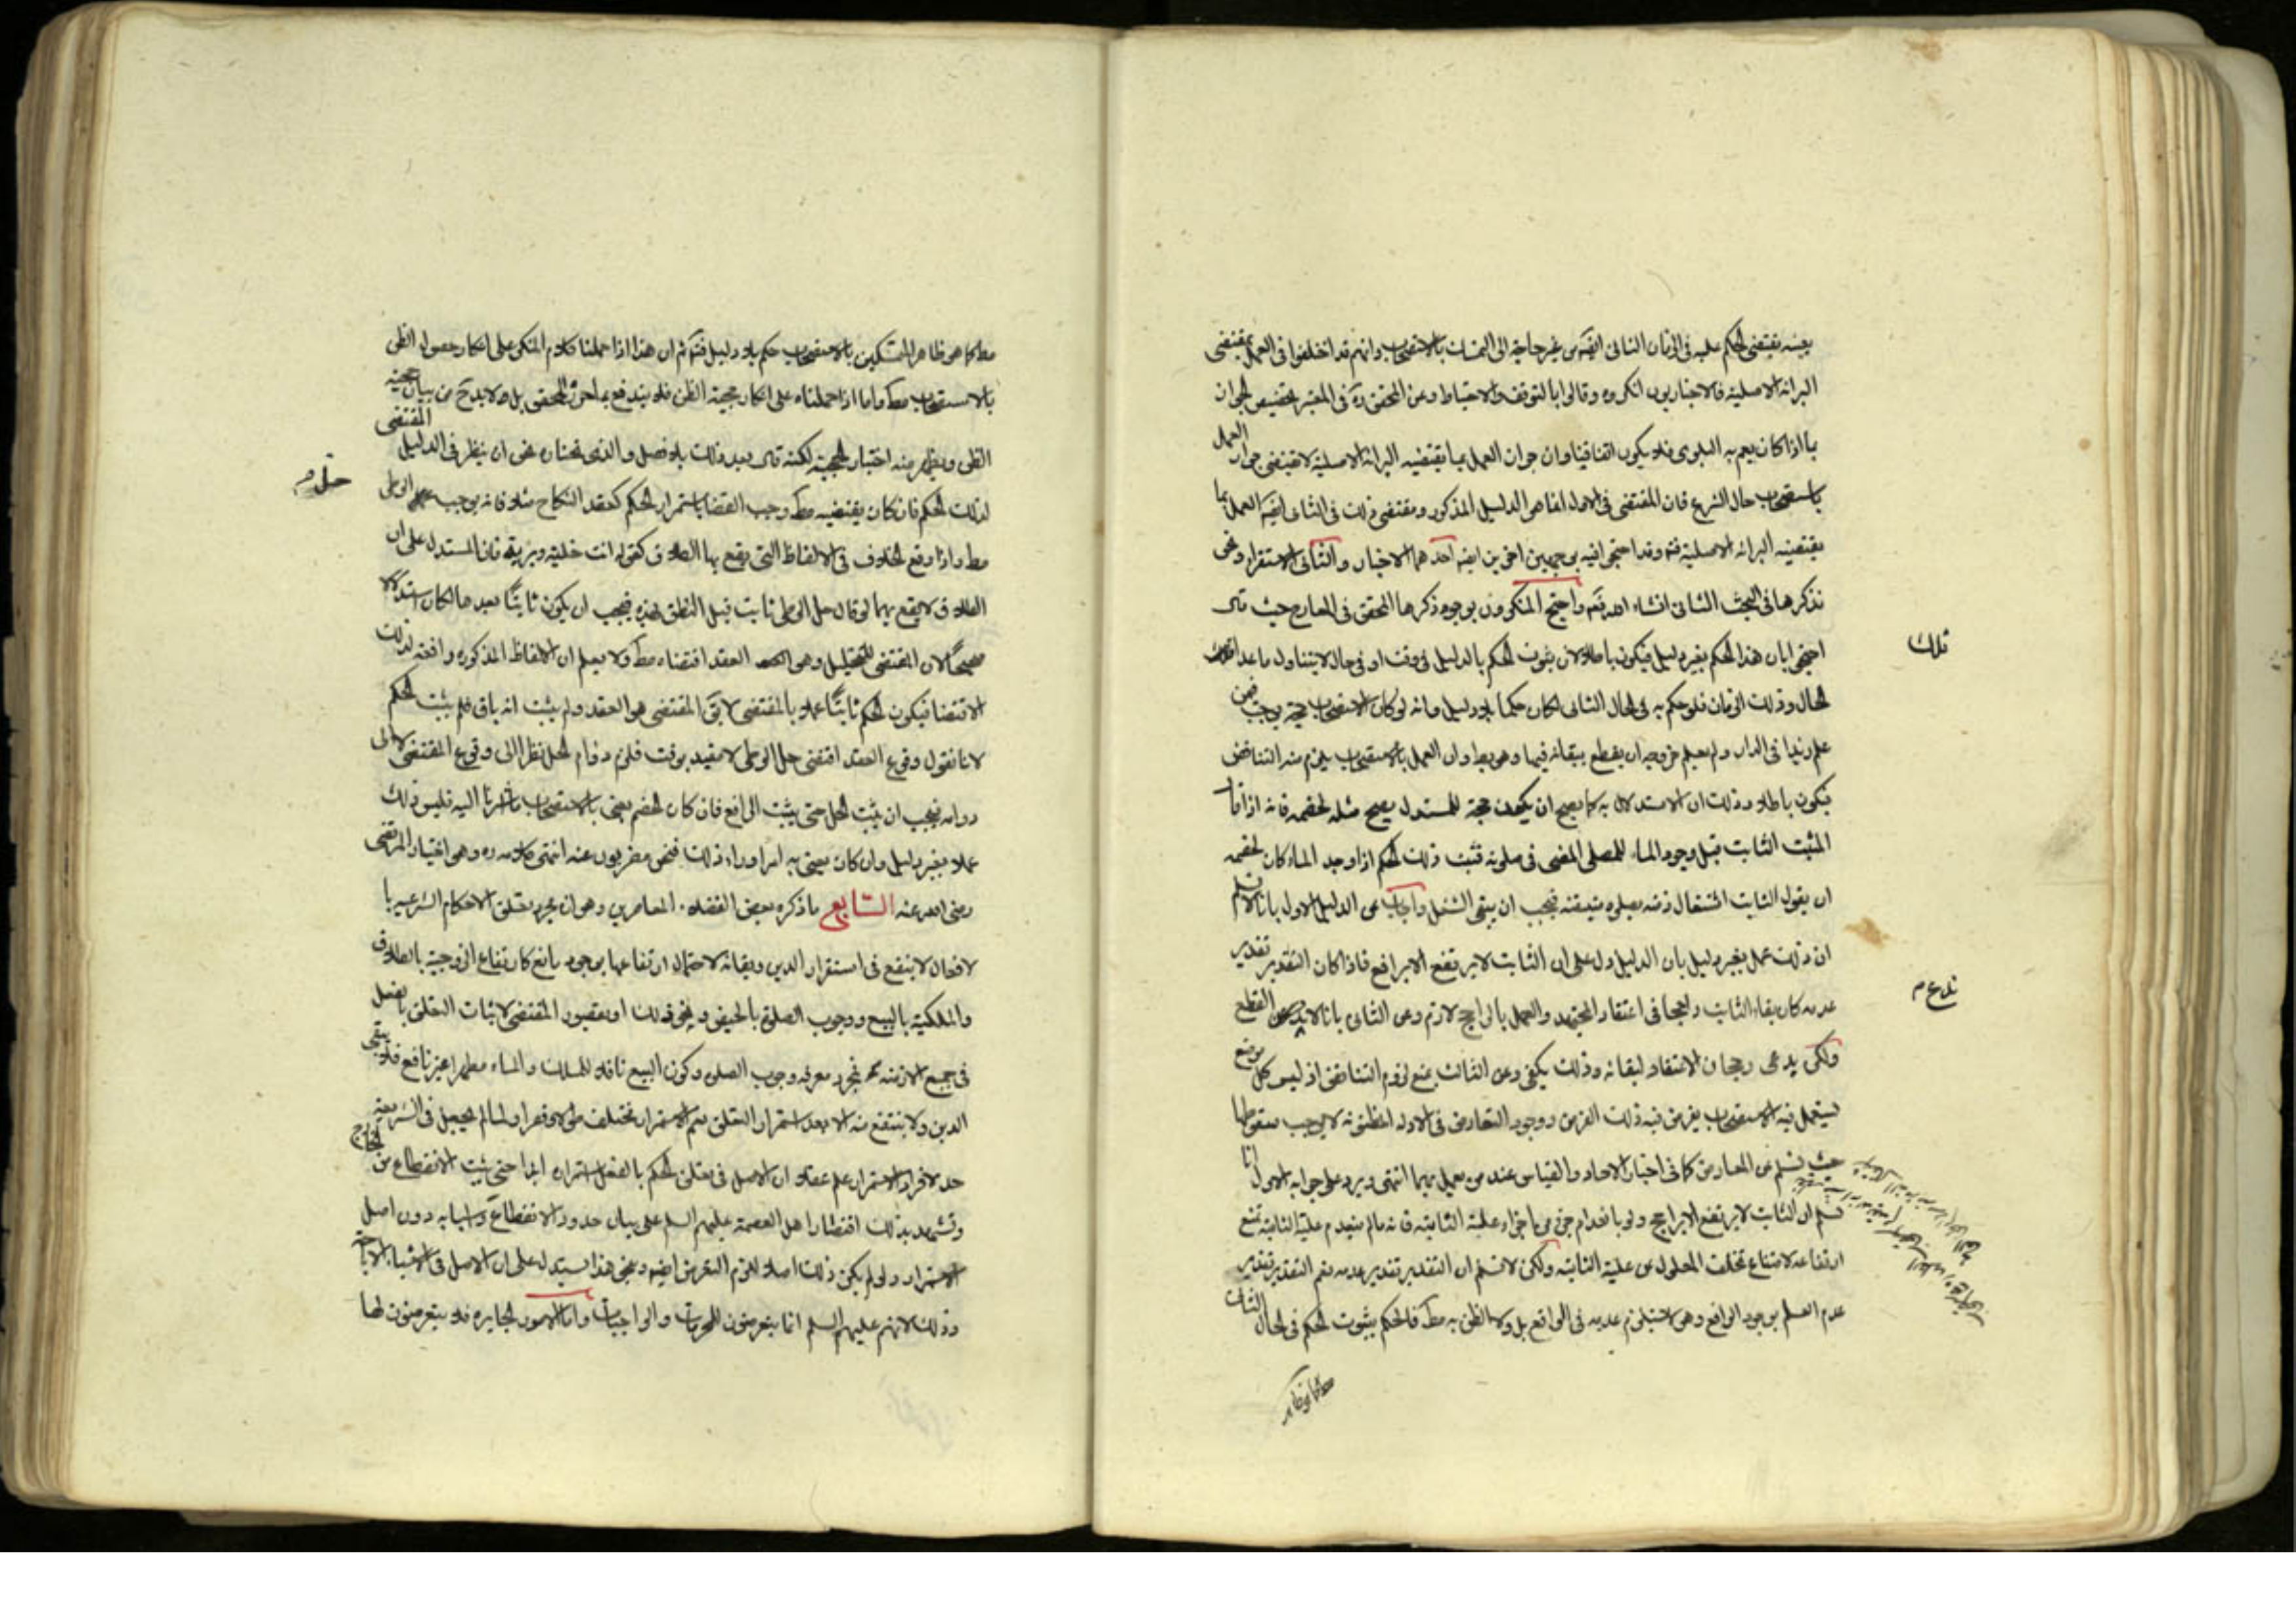 بعينه يقتضى الحكم عليه فى الزمان الثانى ايضه من غير حاجة الى التمسك بالاستصحاب وانهم قد اختلفوا فى العمل بمقتضى
البرائة الاصلية فالاخباريون انكروه وقالوا بالتوقف والاحتياط وعن المحقق ره فى المعتبر تخصيص الجواز
بما اذا كان يعم به البلوى فلا يكون اتفاقيا وان جواز العمل بما يقتضيه البرائة الاصلية لا يقتضى جواز العمل
باستصحاب حال الشرع فان المقتضى فى الاول انما هو الدليل المذكور ومقتضى ذلك فى الثانى ايضه العمل بما
يقتضيه البرائة الاصلية فتم وقد احتجوا فيه بوجهين اخرين ايضه احدهما الاخبار والثانى الاستقراء ونحن
نذكرها فى البحث الثانى انشاء الله تعم واحتج المنكرون بوجوه ذكرها المحقق فى المعارج حيث قال
احتجوا بان هذا الحكم بغير دليل فيكون باطلا لان ثبوت الحكم بالدليل فى وقت او فى حال لا يتناول ما عدا
تلك
الحال وذلك الزمان فلو حكم به فى الحال الثانى لكان حكما بلا دليل وانه لو كان الاستصحاب حجة لوجب فيمن
علم زيدا فى الدار ولم يعلم خروجه ان يقطع ببقائه فيها وهو بط وان العمل بالاستصحاب يلزم منه التناقض
فيكون باطلا وذلك ان الاستدلال به كما يصح ان يكون حجة للمستدل يصح مثله لخصمه فانه اذا قال
المثبت الثابت قبل وجود الماء للمصلى المضى فى صلوته فثبت ذلك الحكم اذا وجد الماء كان لخصمه
ان يقول الثابت اشتغال ذمته بصلوة متيقنة فيجب ان يبقى الشغل واجاب عن الدليل الاول بانا لا نسلم
ان ذلك عمل بغير دليل بان الدليل دل على ان الثابت لا يرتفع الا برافع فاذا كان التقدير تقدير
عدمه كان بقاء الثابت راجحا فى اعتقاد المجتهد والعمل بالراجح لازم وعن الثانى بانا لا ندعى القطع
ندعى م
ولكن يدعى رجحان الاعتقاد لبقائه وذلك يكفى وعن الثالث بمنع لزوم التناقض اذ ليس كل موضع
يستعمل فيه الاستصحاب يفرض فيه ذلك الفرض ووجود التعارض فى الادلة المظنونة لا يوجب سقوطها
حيث تسلم عن المعارض كما فى اخبار الاحاد والقياس عند من يعمل بهما انتهى ويرد على جوابه الاول انا
نسلم ان الثابت لا يرتفع الا برافع ولو بانعدام جزء من اجزاء علية الثابتة فانه مالم ينعدم علية الثابتة تمنع
ارتفاعه لامتناع تخلف المعلول عن علية الثابتة ولكن لا نسلم ان التقدير تقدير عدمه نعم التقدير تقدير
عدم العلم بوجود الرافع وهو لا يستلزم عدمه فى الواقع بل ولا الظن به مط فالحكم بثبوت الحكم فى الحال الثانى
مط كما هو ظاهر المتمسكين بالاستصحاب حكم بلا دليل فتم ثم ان هذا اذا حملنا كلام المنكر على انكار حصول الظن
بالاستصحاب مط واما اذا حملناه على انكار حجية الظن فلا يندفع بما اجرى المحقق بل لابد ح من بيان حجية
الظن ويظهر منه اختيار الحجية لكنه قال بعد ذلك بلا فصل والذى نختاره نحن ان ينظر فى الدليل المقتضى
لذلك الحكم فان كان يقتضيه مط وجب القضا باستمرار الحكم كعقد النكاح مثلا فانه يوجب الوطى
حل م
مط واذا وقع الخلاف فى الالفاظ التى يقع بها الطلاق كقوله انت خلية وبرية فان المستدل على ان
الطلاق لا يقع بهما لو قال حل الوطى ثابت قبل النطق بهذه فيجب ان يكون ثابتا بعدها لكان استدلالا
صحيحا لان المقتضى للتحليل وهو العقد اقتضاه مط ولا يعلم ان الالفاظ المذكورة رافعة لذلك
الاقتضا فيكون الحكم ثابتا عملا بالمقتضى لا يق المقتضى هو العقد ولم يثبت انه باق فلم يثبت الحكم
لانا نقول وقوع العقد اقتضى حل الوطى لا مقيد بوقت فلزم دوام الحل نظرا الى وقوع المقتضى لا الى
دوامه فيجب ان يثبت الحل حتى يثبت الرافع فان كان الخصم يعنى بالاستصحاب ما اشرنا اليه فليس ذلك
عملا بغير دليل وان كان يعنى به امرا وراء ذلك فنحن مضربون عنه انتهى كلامه ره وهو اختيار المرتضى
رضى الله عنه السابع ما ذكره بعض الفضلاء المعاصرين وهو ان مجرد تعلق الاحكام الشرعية با
لافعال لا ينفع فى استقرار الدين وبقائه لاحتمال ارتفاعها بوجود مانع كارتفاع الزوجية بالطلاق
والملكية بالبيع ووجوب الصلوة بالحيض ونحو ذلك او بقصور المقتضى لاثبات التعلق بالفعل
فى جميع الازمنة فمجرد معرفة وجوب الصلوة وكون البيع ناقلا للملك والماء مطهرا غير نافع فلا يبقى
الدين ولا ينتفع منه الا بعد استمرار التعلق نعم الاستمرار يختلف طولا وقصرا ولما لم يجعل فى الشريعة
حد لافراد الاستمرار علم عقلا ان الاصل فى تعلق الحكم بالفعل استمراره ابدا حتى يثبت الانقطاع من الخارج
وتشهد بذلك اقتصار اهل العصمة عليهم السلم على بيان حدود الانقطاع واسبابه دون اصل
الاستمرار ولو لم يكن ذلك اصلا للزم التعرض ايضه وبنحو هذا يستدل على ان الاصل فى الاشياء الاباحة
وذلك لانهم عليهم السلم انما يتعرضون للمحرمات والواجبات واما الامور الجايزة فلا يتعرضون لها